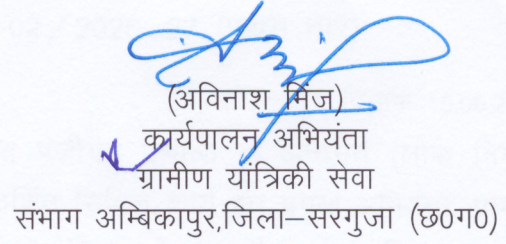 (अविनाश मिंज)
कार्यपालन अभियंता
ग्रामीण यांत्रिकी सेवा
संभाग अम्बिकापुर,जिला–सरगुजा (छ0ग0)